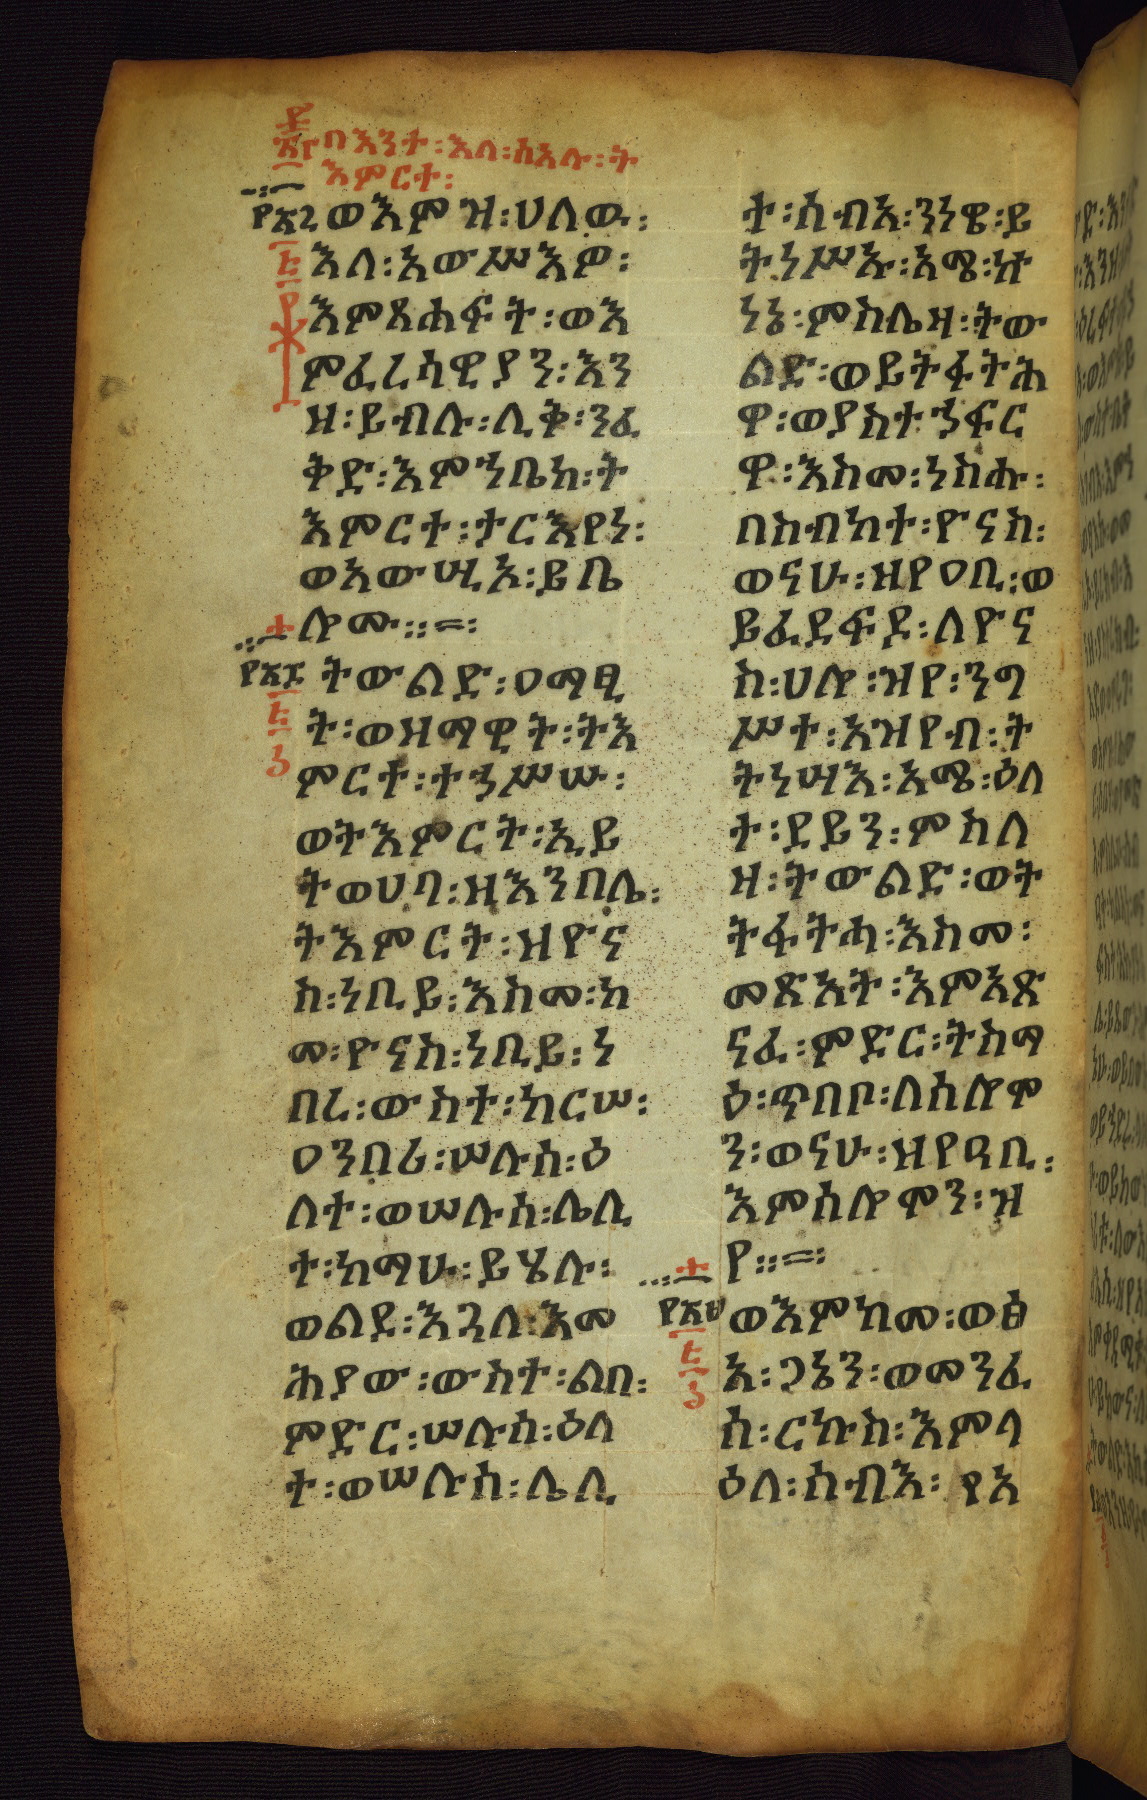 በእንተ፡እለ፡ሰአሉ፡ት
እምርተ፡
ወእምዝ፡ሀለዉ፡
እለ፡አውሥእዎ፡
እምጸሐፍት፡ወእ
ምፈሪሳዊያን፡እን
ዘ፡ይብሉ፡ሊቅ፡ንፈ
ቅድ፡እምኀቤከ፡ት
እምርተ፡ታርእየነ፡
ወአውሢአ፡ይቤ
ሎሙ፡፡=፡
ትውልድ፡ዐማፂ
ት፡ወዘማዊት፡ትእ
ምርተ፡ተኀሥሥ፡
ወትእምርት፡ኢይ
ትወሀባ፡ዘእንበሌ፡
ትእምርት፡ዝዮና
ስ፡ነቢይ፡እስመ፡ከ
መ፡ዮናስ፡ነቢይ፡ነ
በረ፡ውስተ፡ከርሠ፡
ዐንበሪ፡ሠሉስ፡ዕ
ለተ፡ወሠሉስ፡ሌሊ
ተ፡ከማሁ፡ይሄሉ፡
ወልደ፡እጓለ፡እመ
ሕያው፡ውስተ፡ልበ፡
ምድር፡ሠሉስ፡ዕለ
ተ፡ወሠሉስ፡ሌሊ
ተ፡ሰብአ፡ነነዌ፡ይ
ትነሥኡ፡አሜ፡ኵ
ነኔ፡ምስሌዛ፡ትው
ልድ፡ወይትፋትሕ
ዋ፡ወያስተኀፍር
ዋ፡እስመ፡ነስሑ፡
በስብከተ፡ዮናስ፡
ወናሁ፡ዘየዐቢ፡ወ
ይፈደፍደ፡ለዮና
ስ፡ሀሎ፡ዝየ፡ንግ
ሥተ፡አዝየብ፡ት
ትነሣእ፡አሜ፡ዕለ
ተ፡ደይን፡ምስለ
ዘ፡ትውልድ፡ወት
ትፋትሓ፡እስመ፡
መጽአት፡እምአጽ
ናፈ፡ምድር፡ትስማ
ዕ፡ጥበቦ፡ለሰሎሞ
ን፡ወናሁ፡ዘየዓቢ፡
እምሰሎሞን፡ዝ
የ፡፡=፡
ወእምከመ፡ወፅ
አ፡ጋኔን፡ወመንፈ
ስ፡ርኩስ፡እምላ
ዕለ፡ሰብእ፡የአ